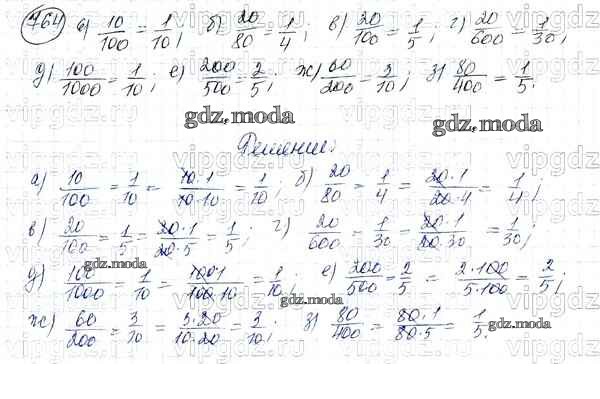 764 а) 10/100 = 1/10; б) 20/80 = 1/4; в) 20/100 = 1/5; г) 20/600 = 1/30;
д) 100/1000 = 1/10; е) 200/500 = 2/5; ж) 60/200 = 3/10; з) 80/400 = 1/5.
gdz.moda gdz.moda
Решение:
а) 10/100 = 1/10 = 10·1/10·10 = 1/10; б) 20/80 = 1/4 = 20·1/20·4 = 1/4;
в) 20/100 = 1/5 = 20·1/20·5 = 1/5; г) 20/600 = 1/30 = 20·1/20·30 = 1/30;
gdz.moda
д) 100/1000 = 1/10 = 100·1/100·10 = 1/10; е) 200/500 = 2/5 = 2·100/5·100 = 2/5;
gdz.moda
ж) 60/200 = 3/10 = 3·20/10·20 = 3/10; з) 80/400 = 80·1/80·5 = 1/5.
gdz.moda
vipgdz.ru